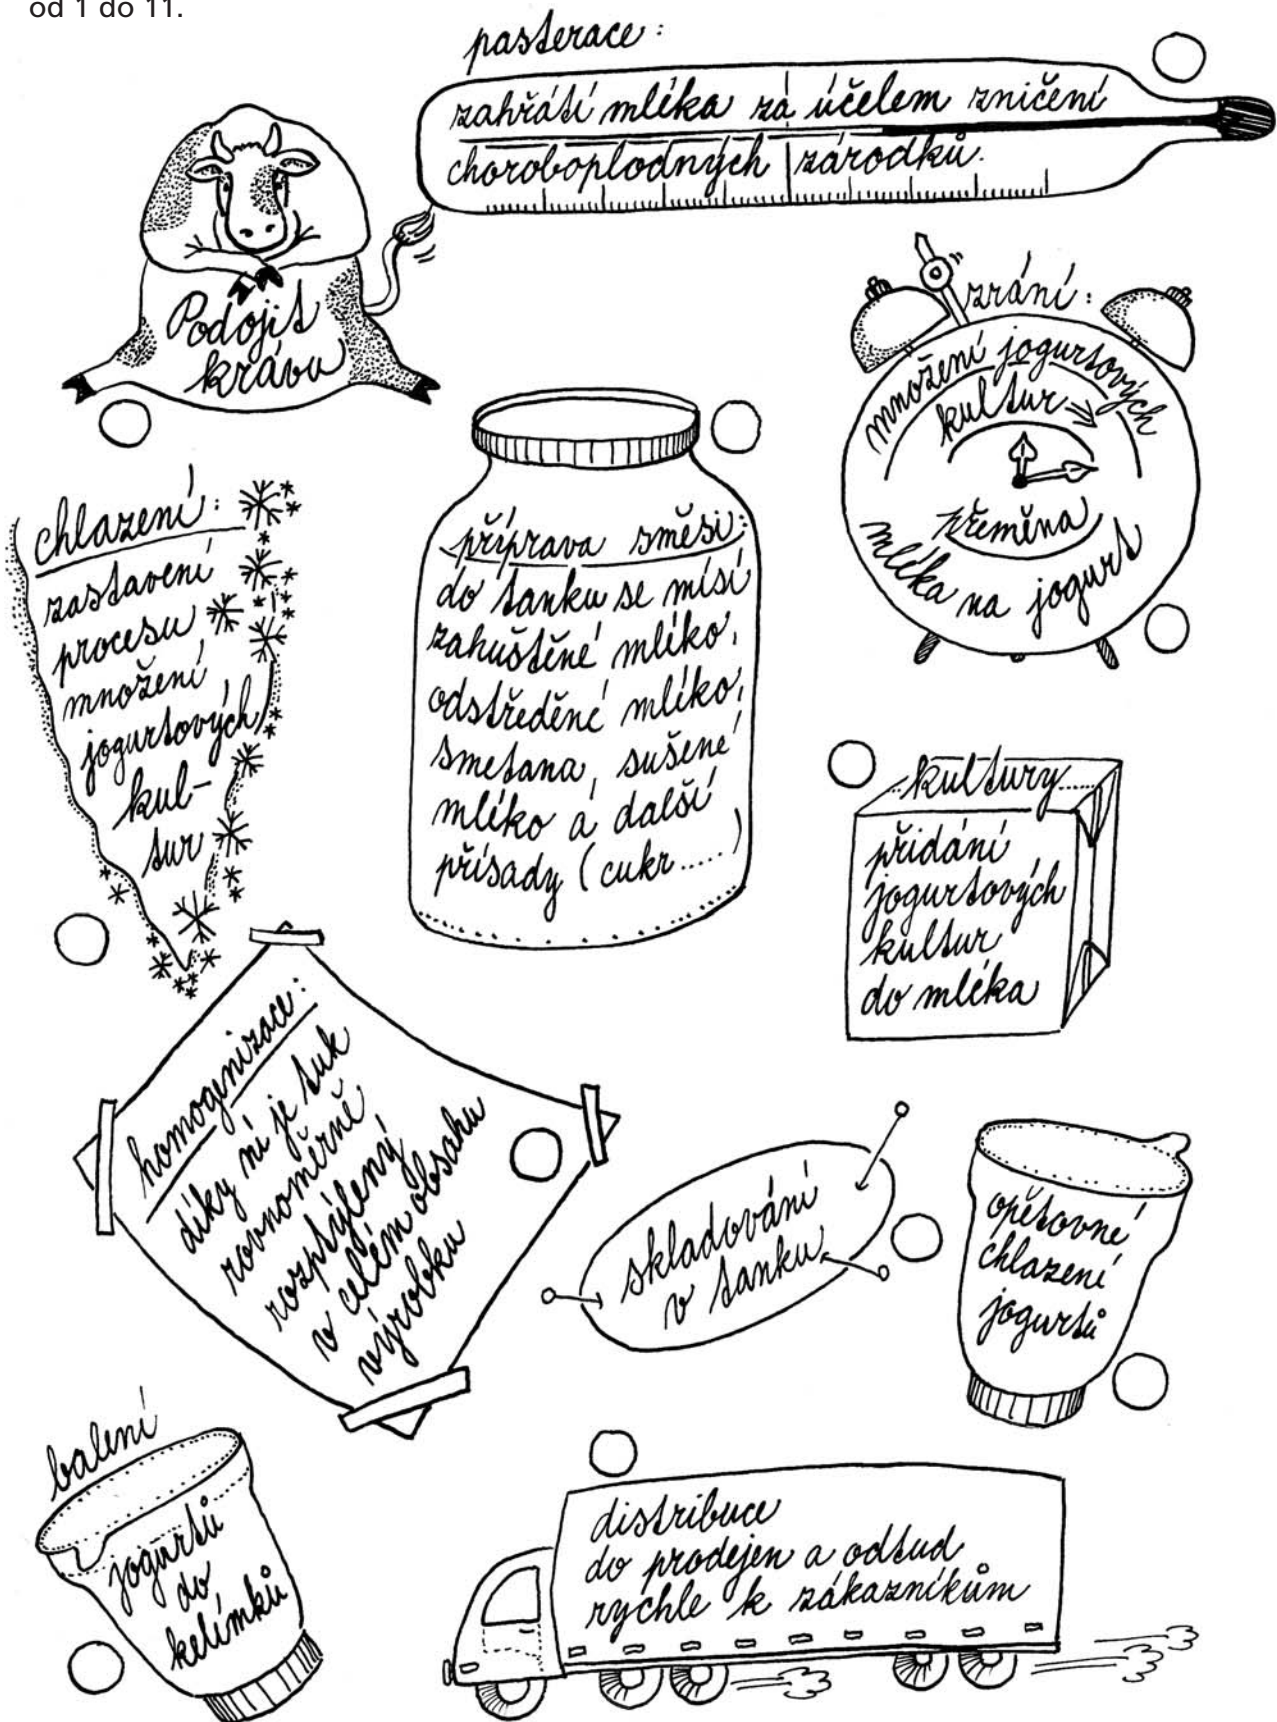 od 1 do 11.
pasterace:
zahřátí mléka za účelem zničení
choroboplodných zárodků.
Podojit
krávu
zrání:
množení jogurtových
kultur
přeměna
mléka na jogurt
chlazení:
zastavení
procesu
množení
jogurtových
kul-
tur
příprava směsi:
do tanku se mísí
zahuštěné mléko,
odstředěné mléko,
smetana, sušené
mléko a další
přísady (cukr.....)
kultury.....
přidání
jogurtových
kultur
do mléka
homogenizace:
díky ní je tuk
rovnoměrně
rozptýlený
v celém obsahu
výrobku
skladování
v tanku
opětovné
chlazení
jogurtů
balení
jogurtů
do
kelímků
distribuce
do prodejen a odtud
rychle k zákazníkům